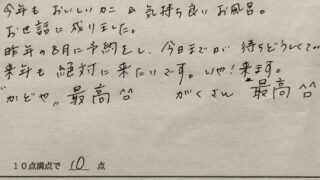 今年も おいしいカニ & 気持ち良いお風呂。
お世話に成りました。
昨年の8月に予約をし、今日までが 待ちどうしくて…
来年も 絶対に来たいです。いや!来ます。
"かどや" 最高 ^^ がくさん 最高 ^^
10点満点で 10 点